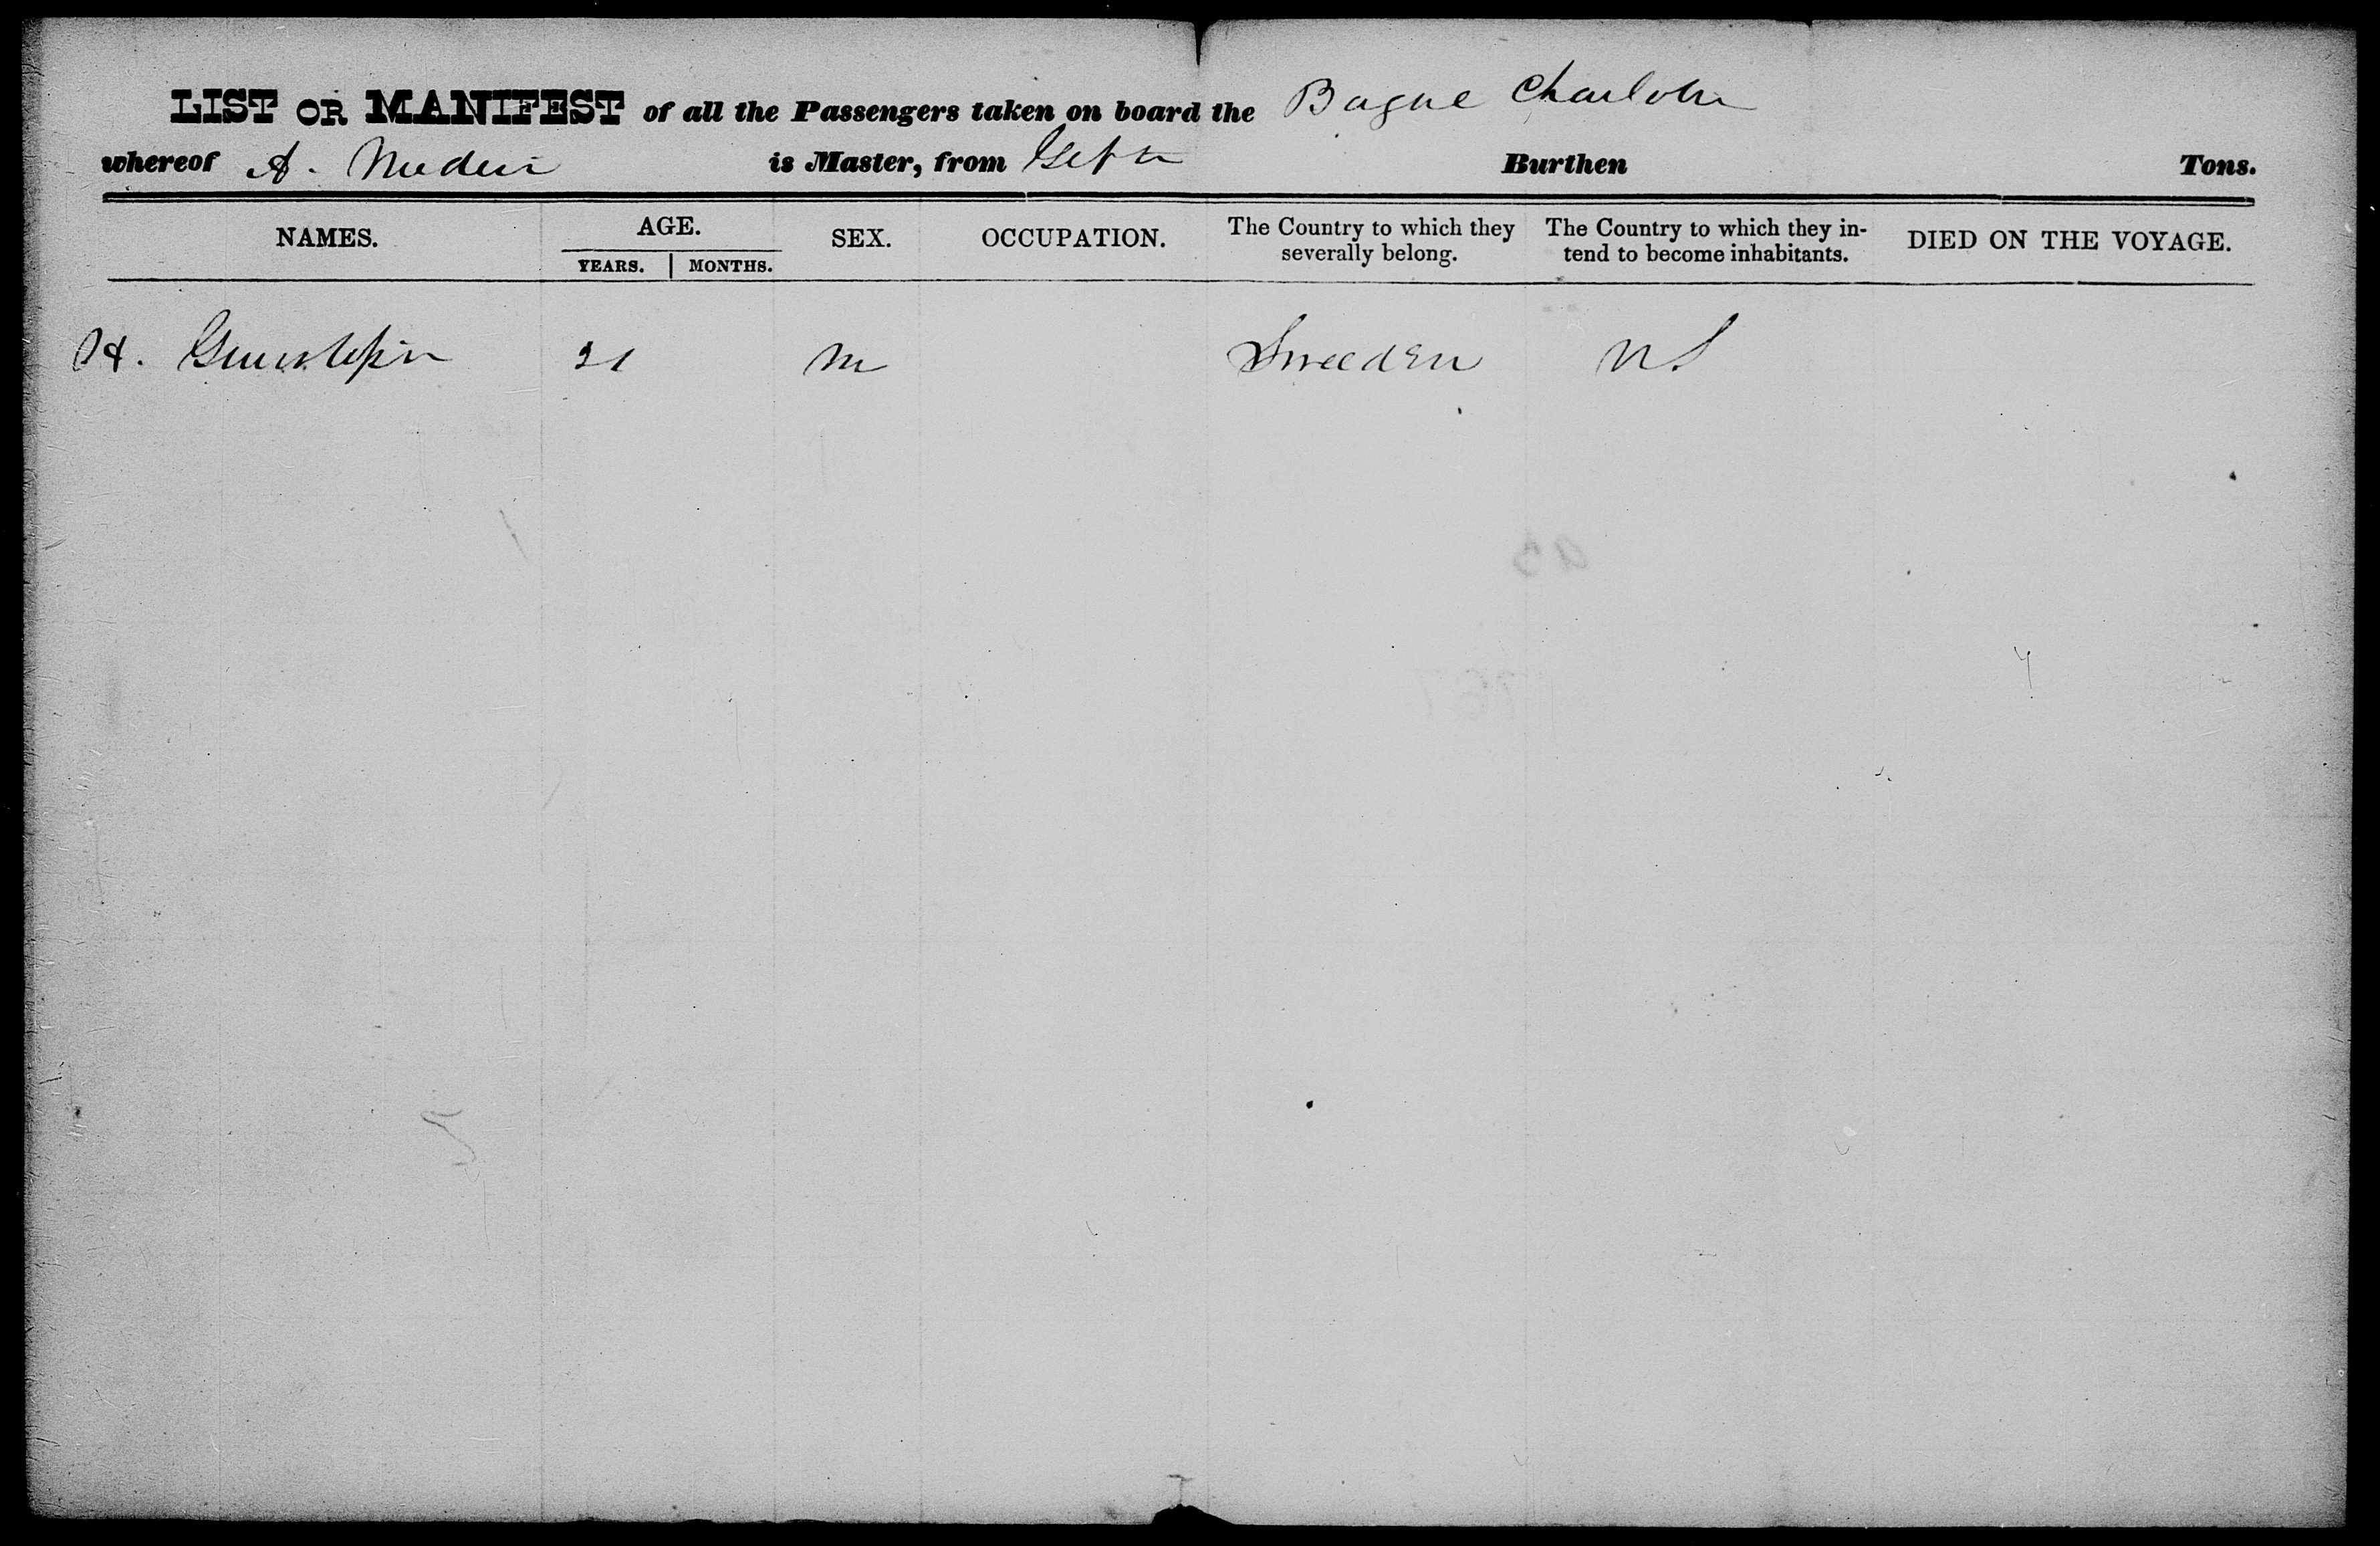 LIST OR MANIFEST of all the Passengers taken on board the Bague Charlotte
whereof A. is Master, from Burthen Tons.
NAMES. AGE. SEX. OCCUPATION. The Country to which they severally belong. The Country to which they in-tend to become inhabitants. DIED ON THE VOYAGE.
YEARS. MONTHS.
H. 21 M Sweeden US